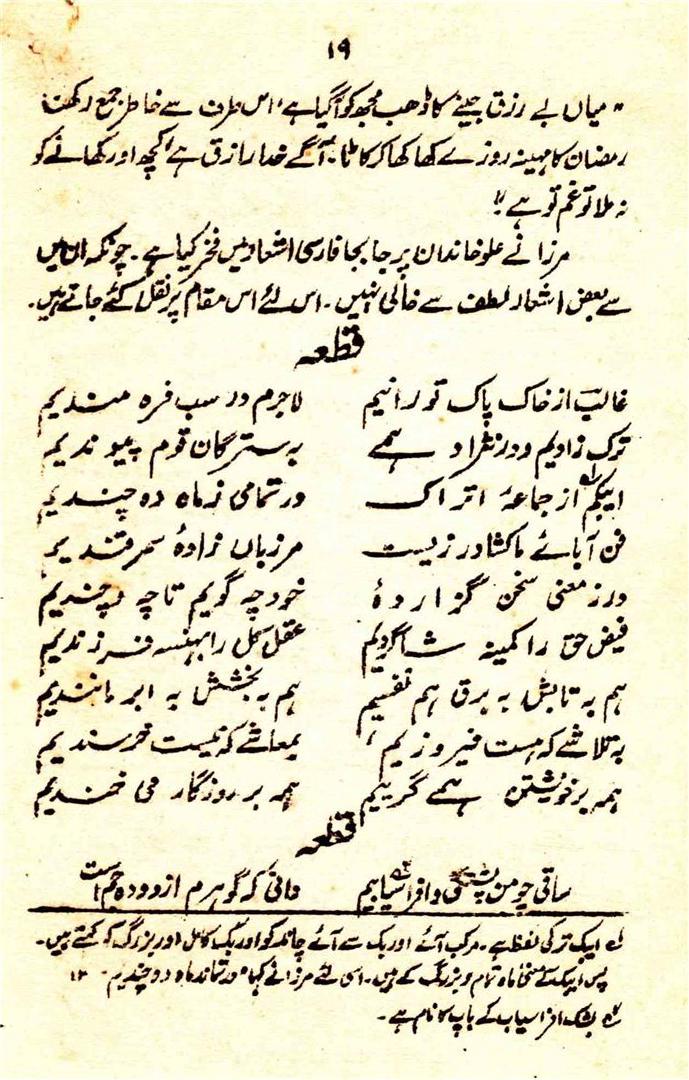 ۱۹
"میاں بے رزق جینے کا ڈھب مجھ کو آگیا ہے، اس طرف سے خاطر جمع رکھنا
رمضان کا مہینہ روزے کھا کھا کر کاٹا۔ آگے خدا رازق ہے، کچھ اور کھانے کو
نہ ملا تو غم تو ہے"!
مرزا نے علو خاندان پر جا بجا فارسی اشعار میں فخر کیا ہے۔ چونکہ ان میں
سے بعض اشعار لطف سے خالی نہیں۔ اس لئے اس مقام پر نقل کئے جاتے ہیں۔
قطعہ
غالب از خاک پاک تورانیم لاجرم در سب فرہ مندیم
ترک زادیم و در نژاد ہمے بہ سترگان قوم پیوندیم
ایبکم از جماعۂ اتراک در تمامی ز ماہ دہ چندیم
فن آبائے ما کشاورزیست مرزباں زادۂ سمرقندیم
ور ز معنی سخن گزاردۂ خود چہ گویم تا چہ و چندیم
فیض حق را کمینہ شاگردیم عقل کل را بہینہ فرزندیم
ہم بہ تابش بہ برق ہم نفسیم ہم بہ بخشش بہ ابر مانندیم
بہ تلاشے کہ ہست فیروزیم، بمعاشے کہ نیست خرسندیم
ہمہ بر خویشتن ہمے گرییم ہمہ بر روزگار می خندیم
قطعہ
ساقی چو من پشنگی و افراسیابیم دانی کہ گوہرم از دودہ جم است
لہ ایبک ترکی لفظ ہے۔ مرکب آئے اور بک سے آئے چاند کو اور بک کامل اور بزرگ کو کہتے ہیں۔
پس ایبک کے معنی ماہ تمام و بزرگ کے ہیں۔ اسی لئے مرزا نے کہا ماہ دہ چندیم۔ ۱۲
پشنگ افراسیاب کے باپ کا نام ہے۔